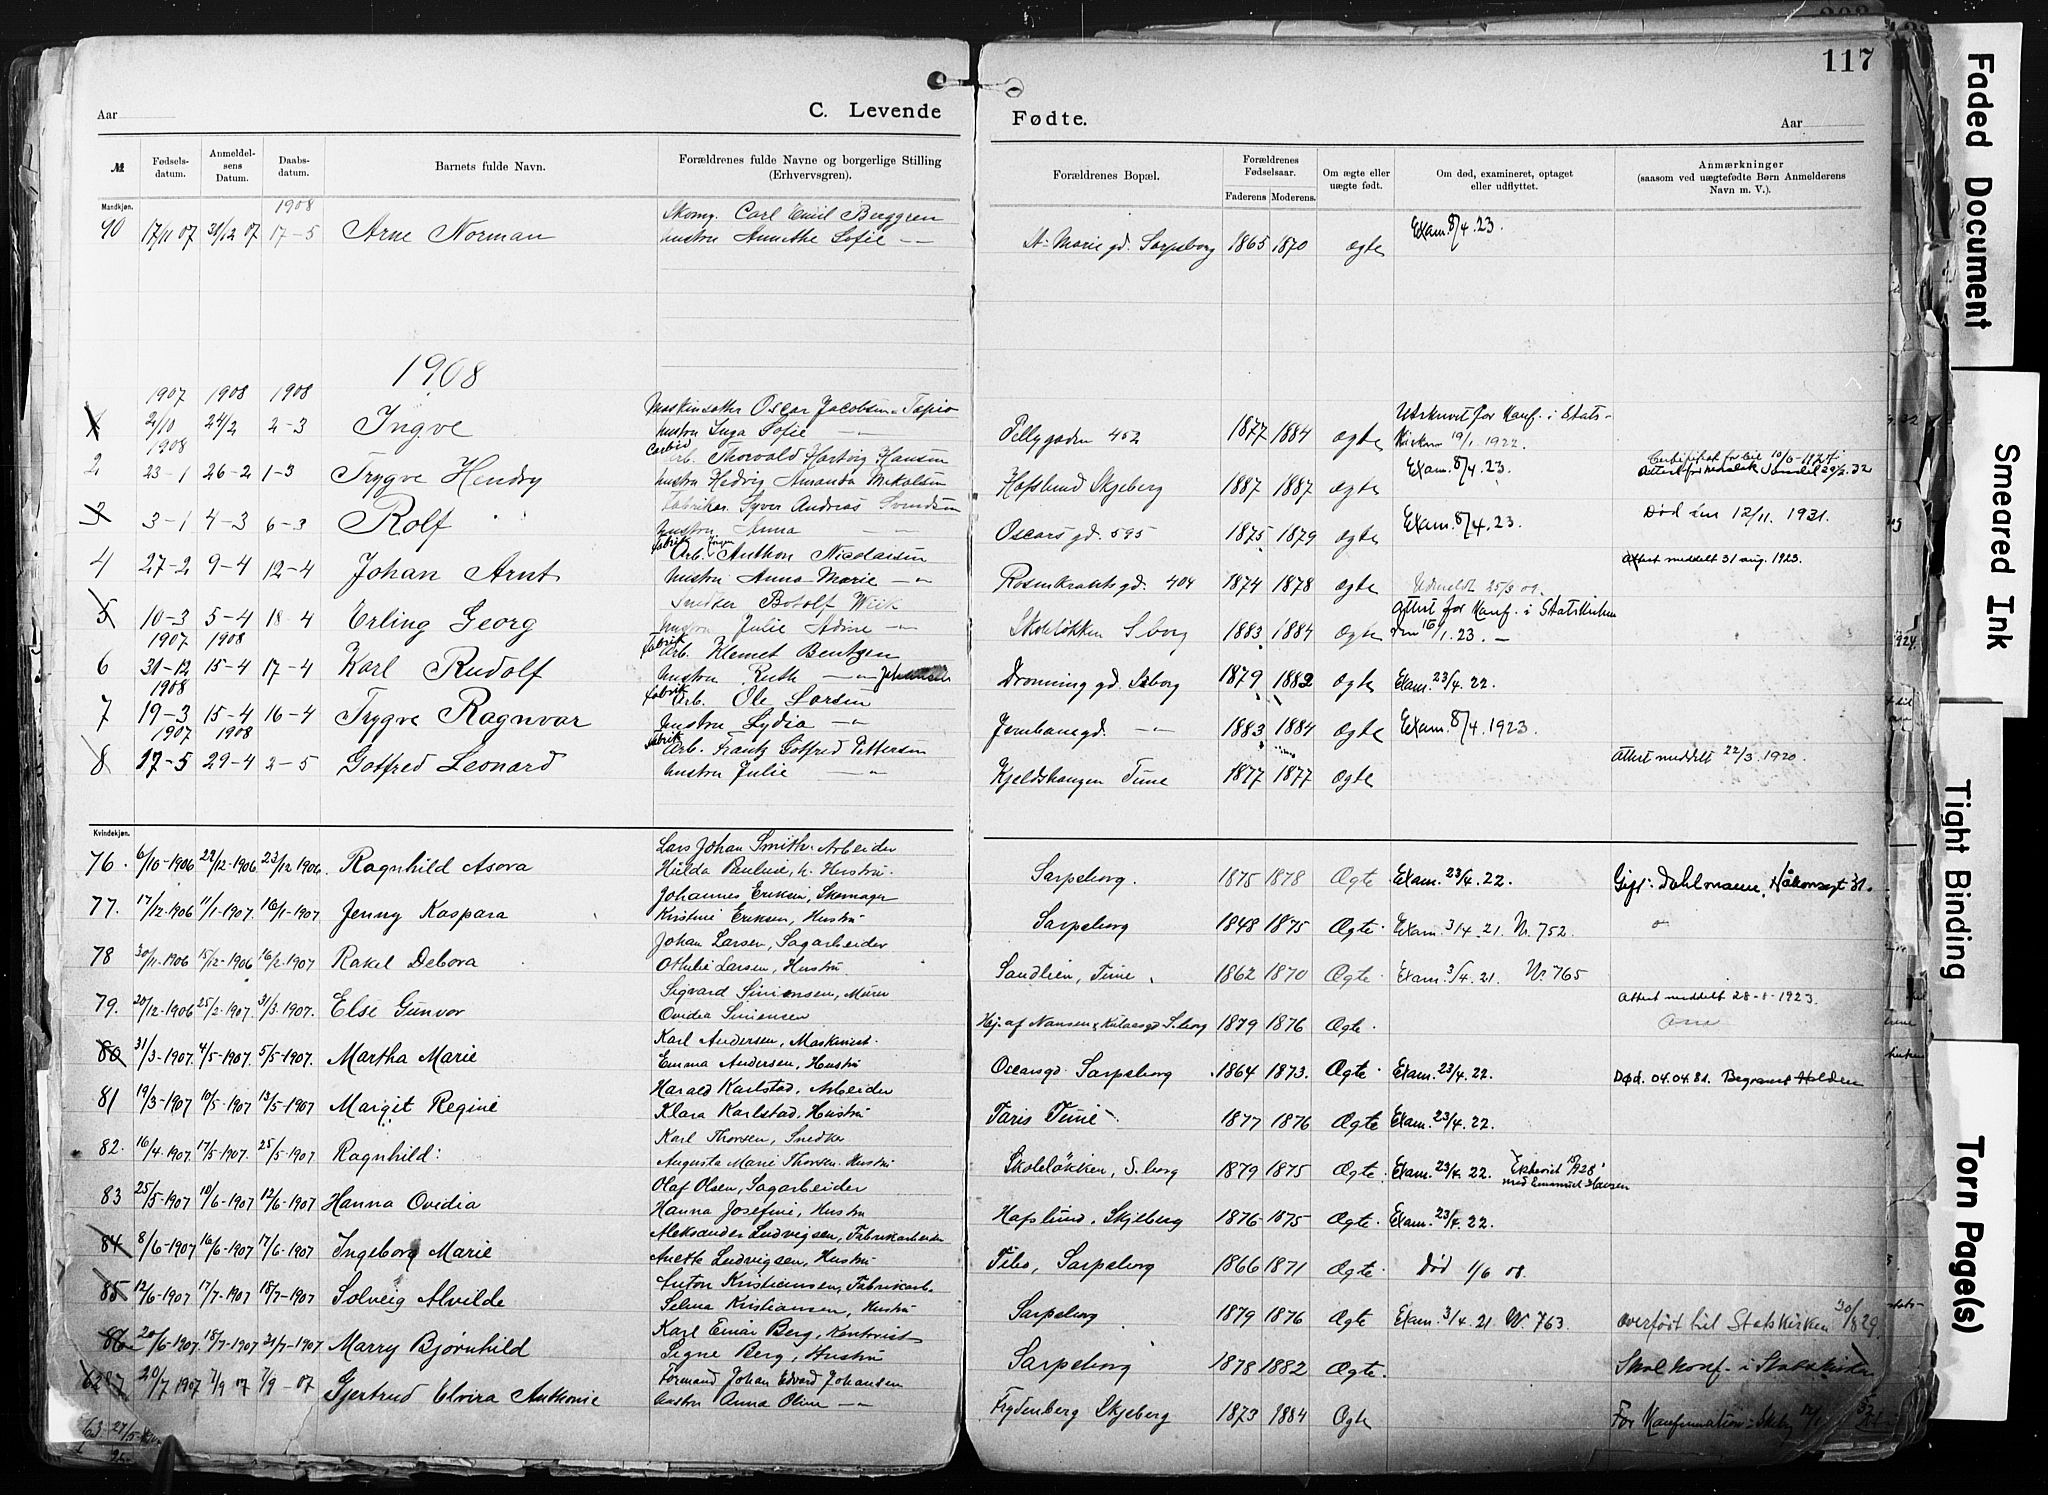 117
Aar
C. Levende Fødte.
Aar
№ Fødsels-datum. Anmeldel-sens Datum. Daabs-datum. Barnets fulde Navn. Forældrenes fulde Navne og borgerlige Stilling (Erhvervsgren). Forældrenes Bopæl. Forældrenes Fødselsaar. Faderens Moderens. Om ægte eller uægte født. Om død, examineret, optaget eller udflyttet. Anmærkninger (saasom ved uægtefødte Børn Anmelderens Navn m. V.).
Mandkjøn.
1908
Skomg. Carl Emil Berggren
90 17/11 07 31/12 07 17-5 Arne Norman hustru Annethe Sofie —"— St. Marie gd. Sarpsborg 1865 1870 ægte Exam. 8/4.23.
1908
1907 1908 1908
Maskinsetter Oscar Jacobsen Tapio
1 2/10 24/2 2-3 Ingve hustru Inga Sofie —"— Pellygaden 452 1877 1884 ægte Utskrevet for Konf. i Stats-Kirken 19/1 1922.
1908
Carbid Arb. Thorvald Hartvig Hansen
2 23-1 26-2 1-3 Trygve Hendry hustru Hedvig Amanda Mikalsen Hafslund Skjeberg 1887 1887 ægte Exam. 8/4.23.
Fabrikar. Syver Andreas Svendsen
3 3-1 4-3 6-3 Rolf hustru Anna —"— Oscars gd. 595 1875 1879 ægte Exam. 8/4.23. Død den 12/11. 1931.
Fabrik Arb. Jørgen Anthon Nicolaisen
4 27-2 9-4 12-4 Johan Arnt hustru Anna Marie —"— Rosenkrants gd. 404 1874 1878 ægte Udmeldt 25/3 09. Attest meddelt 31 aug. 1923.
Snedker Botolf Wiik
5 10-3 5-4 18-4 Erling Georg hustru Julie Adine —"— Skoleløkken S.borg 1883 1884 ægte Attest for Konf. i Statskirken den 16/1.23. —
1907 1908
Fabrik Arb. Klemet Bentzen
6 31-12 15-4 17-4 Karl Rudolf hustru Ruth —"— Dronning gd. S.borg 1879 1882 ægte Exam. 23/4.22.
1908
Fabrik Arb. Ole Larsen
7 19-3 15-4 16-4 Trygve Ragnvar hustru Lydia —"— Jernbanegd. —"— 1883 1884 ægte Exam. 8/4.1923.
1907 1908
Fabrik Arb. Frantz Gotfred Pettersen
8 17-5 29-4 2-5 Gotfred Leonard hustru Julie —"— Kjeldshaugen Tune 1877 1877 ægte Attest meddelt 22/3.1920.
Kvindekjøn.
Lars Johan Smith. Arbeider
76. 6/10-1906 22/12-1906 23/12 1906. Ragnhild Asora Hulda Pauline, h. Hustru. Sarpsborg. 1875 1878 Ægte Exam. 23/4.22.
Johannes Eriksen, Skomager
77. 17/12-1906 11/1-1907. 16/1-1907 Jenny Kaspara Kristine Eriksen, Hustru Sarpsborg 1848 1875 Ægte. Exam. 3/4.21. Nr. 752.
Johan Larsen, Sagarbeider
78 30/11-1906 15/12-1906 16/2-1907 Rakel Debora Othilie Larsen, Hustru. Sandlien, Tune 1862 1870 Ægte Exam. 3/4.21. Nr. 765
Sigvard Simonsen, Murer
79. 20/12-1906 25/2-1907. 31/3-1907. Else Gunvor Ovidia Simonsen Hj. af Nansen & Kulaasgd S.borg 1879 1876 Ægte Attest meddelt 28-8-1923.
Karl Andersen, Maskinist.
80 31/3-1907 4/5-1907 5/5-1907. Martha Marie Emma Andersen, Hustru Oscarsgd. Sarpsborg 1864 1873. Ægte. Exam. 23/4.22. Død. 04.04.81. Begravet Halden
Harald Karlstad, Arbeider
81 19/3-1907 10/5-1907 13/5-1907 Margit Regine Klara Karlstad, Hustru Taris Tune 1877 1876 Ægte Exam. 23/4.22.
Karl Thorsen, Snedker
82. 16/4-1907. 17/5-1907. 25/5-1907 Ragnhild. Augusta Marie Thorsen. Hustru Skoleløkken, S.borg 1879 1875 Ægte. Exam. 23/4.22. Ekteviet 1928 med Emanuel Hansen
Olaf Olsen, Sagarbeider
83 25/5-1907 10/6-1907 12/6-1907 Hanna Ovidia Hanna Josefine, Hustru Hafslund, Skjeberg 1876 1875 Ægte. Exam. 23/4.22.
Aleksander Ludvigsen, Fabrikarbeider
84 8/6-1907 16/6-1907 17/6-1907 Ingeborg Marie Anette Ludvigsen, Hustru Sarpsborg 1866 1871 Ægte. Død 1/6 08.
Anton Kristiansen, Fabrikarb.
85 12/6-1907 17/7-1907 18/7-1907 Solveig Alvilde Selma Kristiansen, Hustru Sarpsborg 1879 1876 Ægte Exam. 3/4.21 Nr. 763. Overført til Statskirken 30/8 29.
Karl Einar Berg, Kontorist
86 20/6-1907 18/7-1907 21/7-1907 Marry Bjørnhild Signe Berg, Hustru Sarpsborg 1878 1882 Ægte. Skal konf. i Statskirken
Formand Johan Edvard Johansen
87 20/7 1907 7/9 07 7/9-07 Gjertrud Elvira Anthonie hustru Anna Oline —"— Frydenberg Skjeberg 1873 1884 Ægte For Konfirmation
63
Faded Document
Smeared Ink
Tight Binding
Torn Page(s)